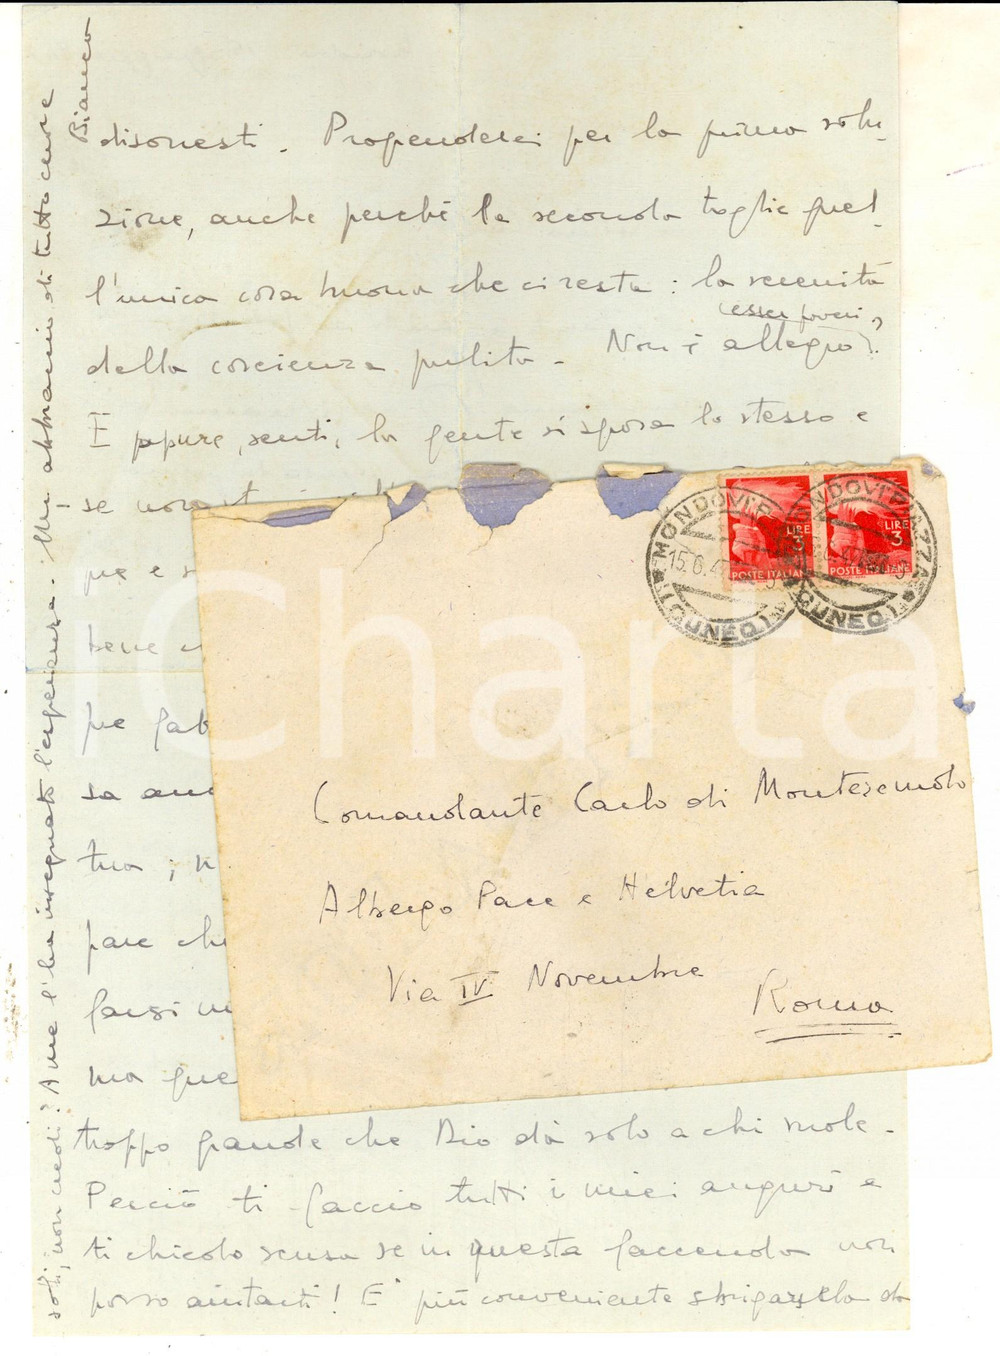 disonesti. Propenderei per la prima solu-
zione, anche perché la seconda toglie quel-
l'unica cosa buona che ci resta: la serenità
(esser poveri,
della coscienza pulita. Non è allegro?
Eppure, senti, la gente si sposa lo stesso e
se non
pre e s
tene c
pre fab
sa anc
tua; n
pare che
farsi m
ma que
troppo grande che Dio dà solo a chi vuole.
Perciò ti faccio tutti i miei auguri e
ti chiedo scusa se in questa faccenda non
posso aiutarti! E' più conveniente sbrigarsela da
soli, non credi? A me l'ha insegnato l'esperienza. Mi abbraccio di tutto cuore
Bianco
MONDOVI' PIAZZA
15.6.4
(CUNEO)
MONDOVI' PIAZZA
(CUNEO)
LIRE
3
POSTE ITALIANE
LIRE
3
POSTE ITALIANE
Comandante Carlo di Montezemolo
Albergo Pace e Helvetia
Via IV Novembre
Roma
iCharta